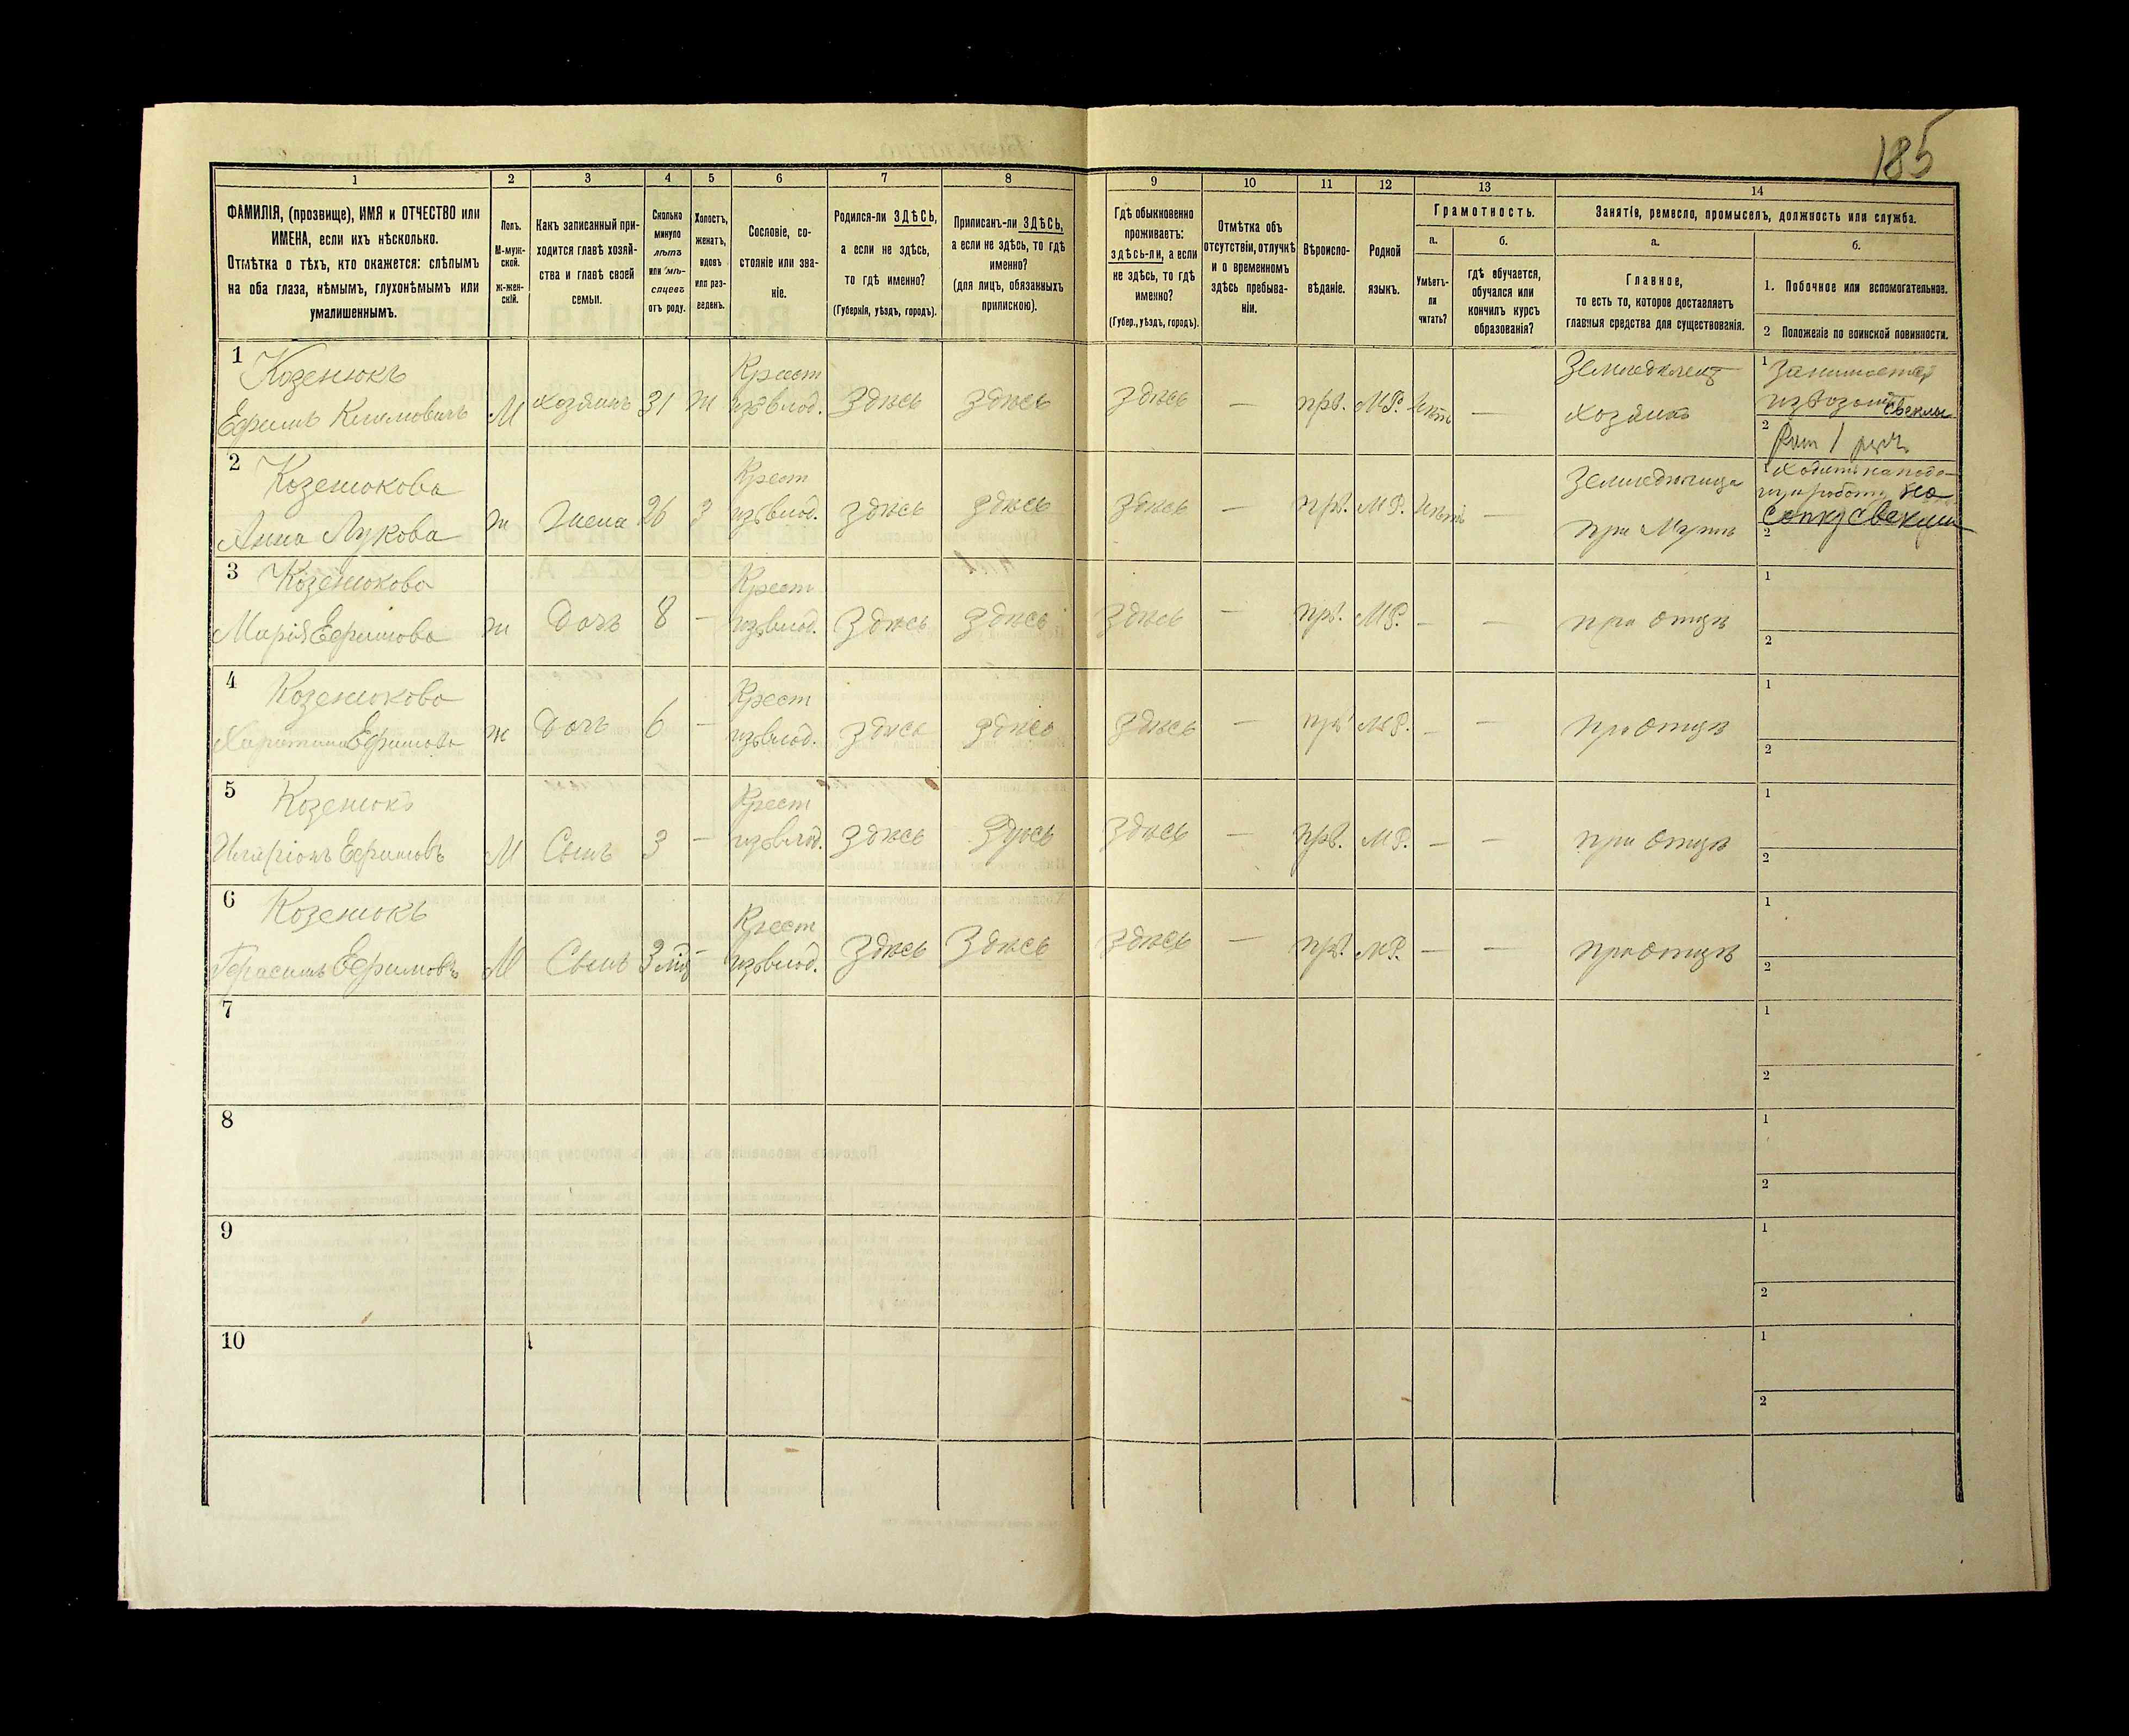 185
1 2 3 4 5 6 7 8 9 10 11 12 13 14
ФАМИЛІЯ, (прозвище), ИМЯ и ОТЧЕСТВО или
ИМЕНА, если ихъ нѣсколько.
Отмѣтка о тѣхъ, кто окажется: слѣпымъ
на оба глаза, нѣмымъ, глухонѣмымъ или
умалишеннымъ.
Полъ.
М-муж-
ской.
ж-жен-
скій.
Какъ записанный при-
ходится главѣ хозяй-
ства и главѣ своей
семьи.
Сколько
минуло
лѣтъ
или мѣ-
сяцевъ
отъ роду.
Холостъ,
женатъ,
вдовъ
или раз-
веденъ.
Сословіе, со-
стояніе или зва-
ніе.
Родился-ли ЗДѢСЬ,
а если не здѣсь,
то гдѣ именно?
(Губернія, уѣздъ, городъ).
Приписанъ-ли ЗДѢСЬ,
а если не здѣсь, то гдѣ
именно?
(для лицъ, обязанныхъ
припискою).
Гдѣ обыкновенно
проживаетъ:
здѣсь-ли, а если
не здѣсь, то гдѣ
именно?
(Губер., уѣздъ, городъ).
Отмѣтка объ
отсутствіи, отлучкѣ
и о временномъ
здѣсь пребыва-
ніи.
Вѣроиспо-
вѣданіе.
Родной
языкъ.
Грамотность.
а.
Умѣетъ-
ли
читать?
б.
гдѣ обучается,
обучался или
кончилъ курсъ
образованія?
Занятія, ремесло, промыселъ, должность или служба.
а.
Главное,
то есть то, которое доставляетъ
главныя средства для существованія.
б.
1. Побочное или вспомогательное.
2 Положеніе по воинской повинности.
1 Козенюкъ Крест Земледѣлецъ 1 Занимается
Ефимъ Климовичъ М хозяинъ 31 ж изъ влад. Здѣсь Здѣсь Здѣсь — прв. МР. Нѣтъ — хозяинъ извозомъ свеклы
2 Рат 1 разр.
2 Козенюкова Крест Земледѣлица 1 Ходитъ на подё-
Анна Лукова ж Жена 26 З изъ влад. Здѣсь Здѣсь Здѣсь — прв. МР. Нѣтъ — при Мужѣ работу на
2
3 Козенюкова Крест 1
Марія Ефимова ж Дочь 8 — изъ влад. Здѣсь Здѣсь Здѣсь — прв. МР. — — при Отцѣ 2
4 Козенюкова Крест 1
Харитина Ефимова ж Дочь 6 — изъ влад. Здѣсь Здѣсь Здѣсь — прв. МР. — — при Отцѣ 2
5 Козенюкъ Крест 1
Иларіонъ Ефимовъ М Сынъ 3 — изъ влад. Здѣсь Здѣсь Здѣсь — прв. МР. — — при Отцѣ 2
6 Козенюкъ Крест 1
Герасимъ Ефимовъ М Сынъ 3 мѣс — изъ влад. Здѣсь Здѣсь Здѣсь — прв. МР. — — при Отцѣ 2
7 1
2
8 1
2
9 1
2
10 1
2